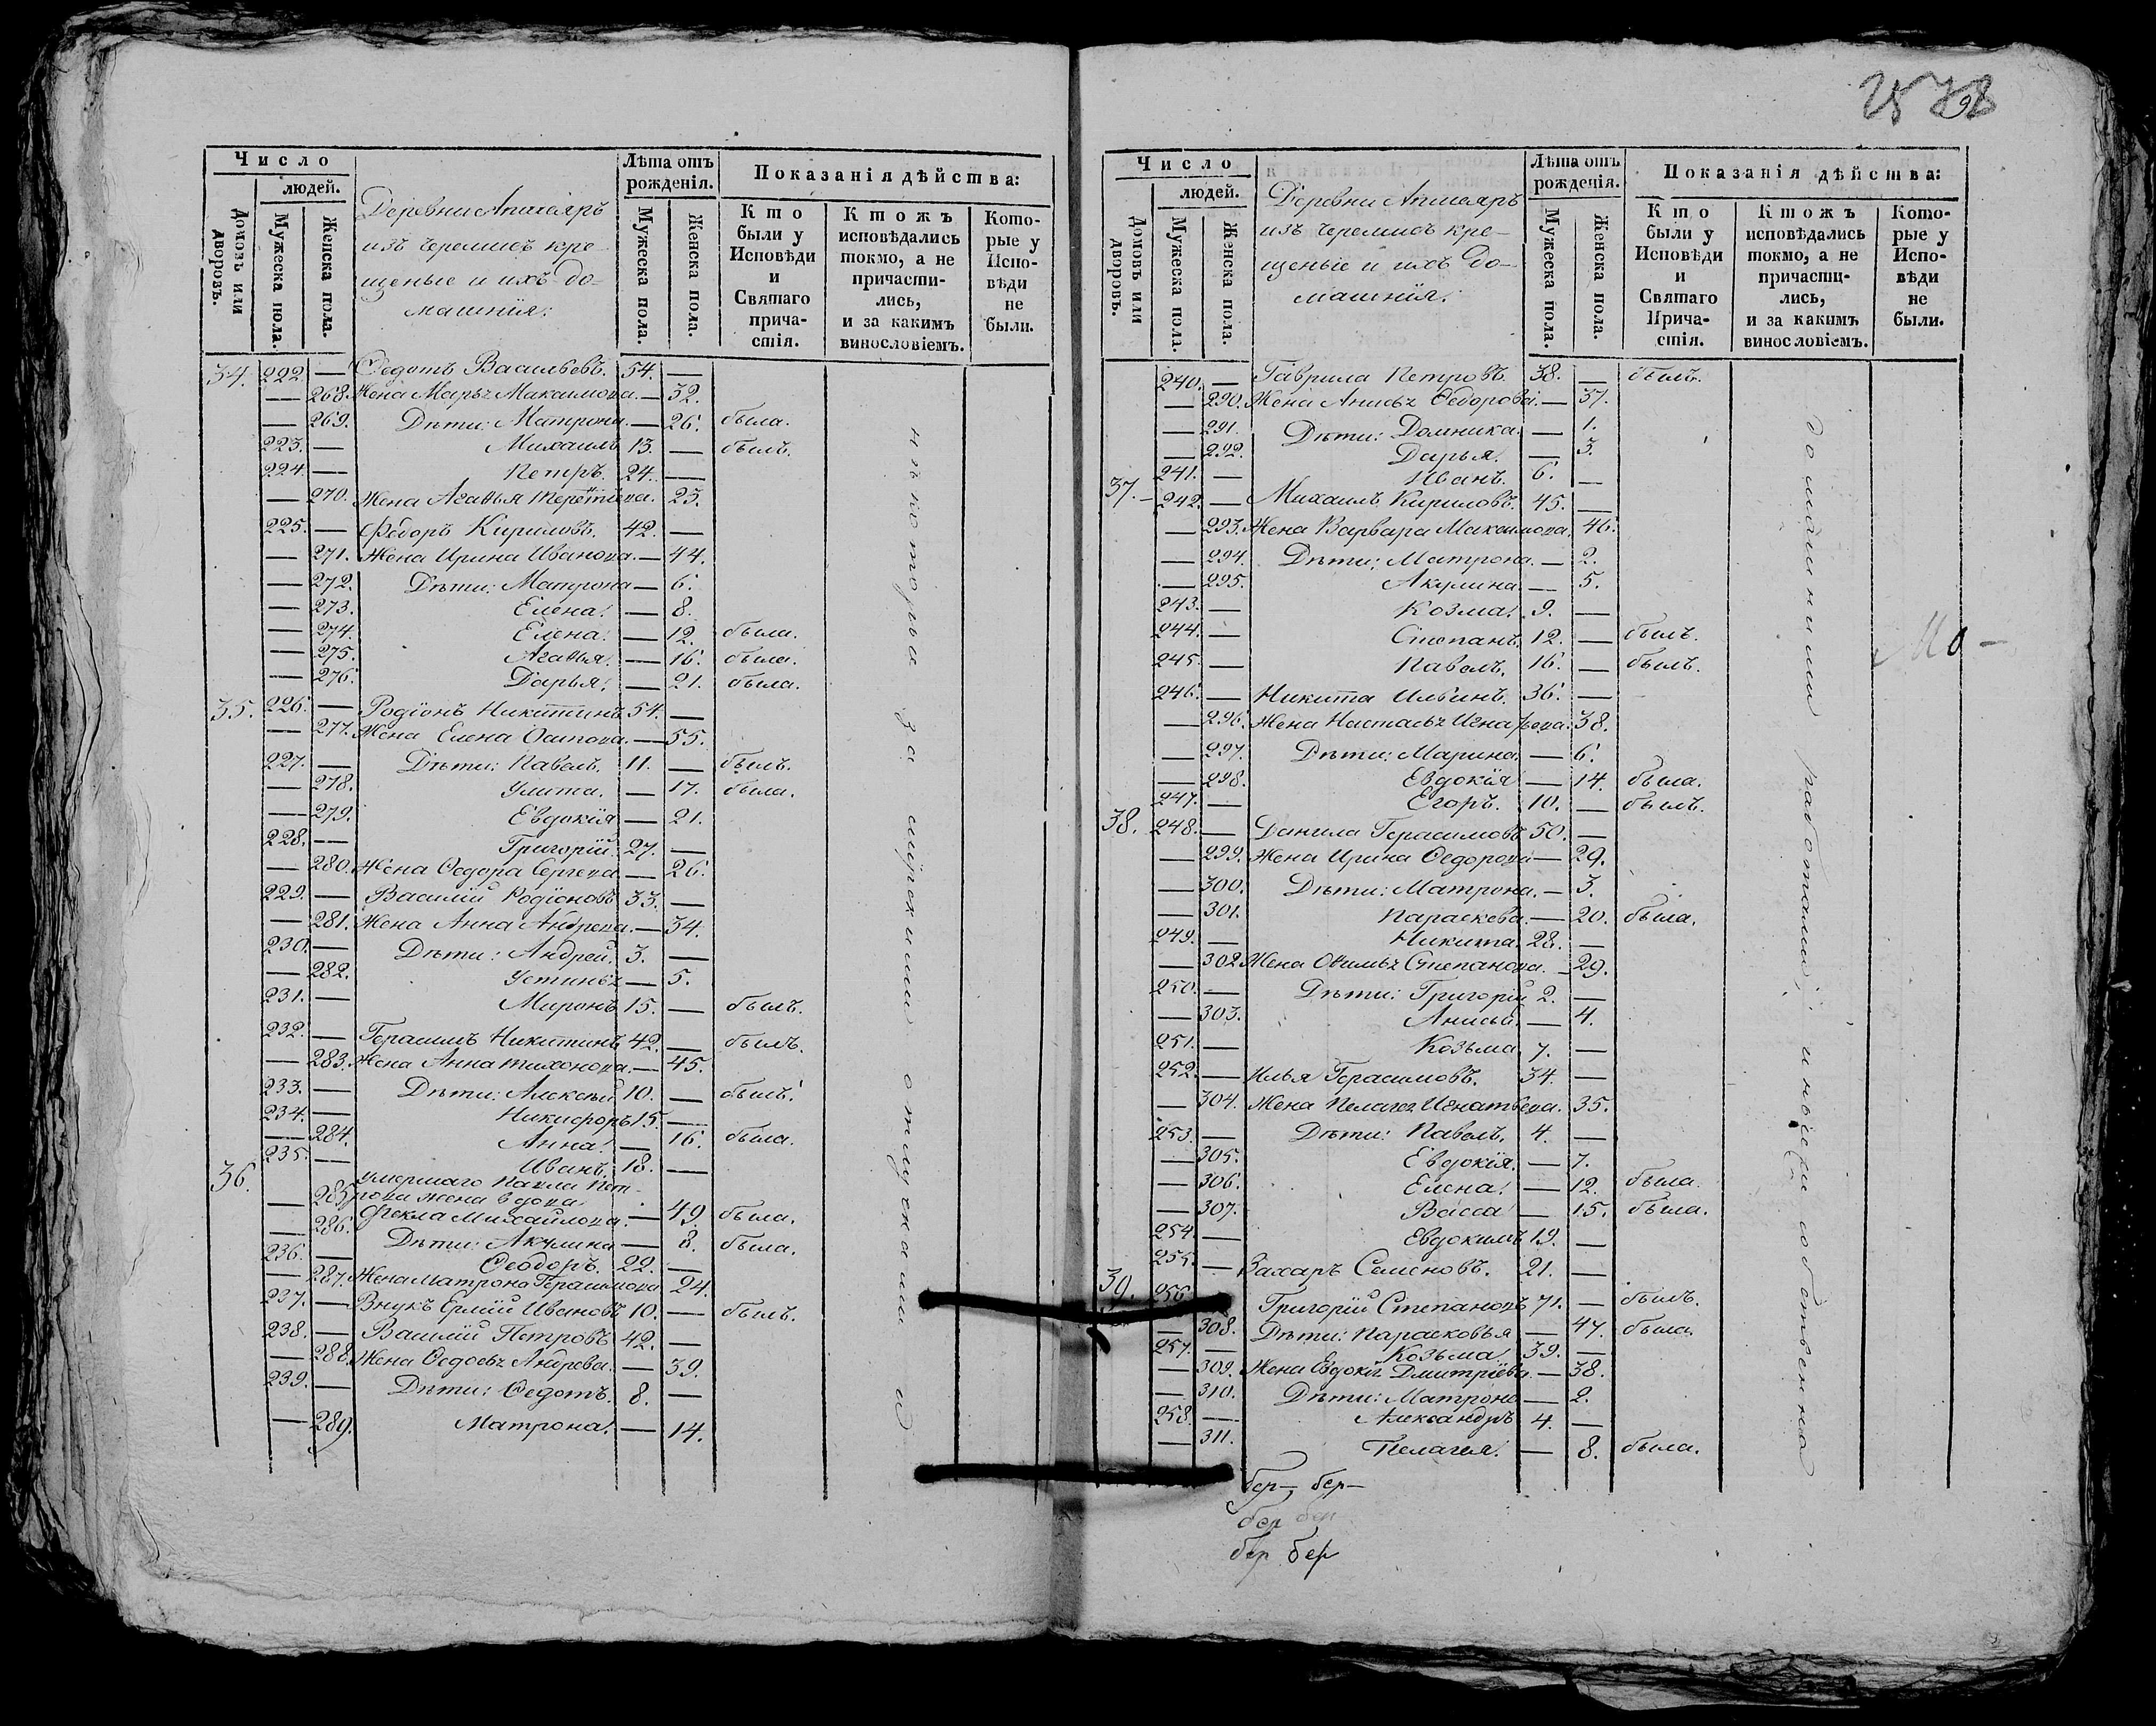 Число
людей.
Домовъ или дворовъ.
Мужеска пола.
Женска пола.
Деревни
изъ черемисъ кре-
щеные и ихъ до-
машнія:
Лѣта отъ рожденія.
Мужеска пола.
Женска пола.
Показанія дѣйства:
Кто были у Исповѣди и Святаго причастія.
Ктожъ исповѣдались токмо, а не причастились, и за какимъ винословіемъ.
Которые у Исповѣди не были.
34. 222. — Ѳедотъ Васильевъ. 54. —
— 268. Жена Марья Максимова. — 32.
— 269. Дѣти: Матрона. — 26. была.
223. — Михаилъ 13. — былъ.
224. — Петръ. 24. —
— 270. Жена Агафья 23.
225. — Ѳедоръ Кириловъ. 42. —
— 271. Жена Ирина Иванова. — 44.
— 272. Дѣти: Матрона — 6.
— 273. Елена. — 8.
— 274. Елена. — 12. была.
— 275. Агафья. — 16. была.
— 276. Дарья. — 21. была.
35. 226. — Родіонъ Никитинъ 54. —
— 277. Жена Елена Осипова. — 55.
227. — Дѣти: Павелъ. 11. — былъ.
— 278. Улита. — 17. была.
— 279. Евдокія — 21.
228. — Григорій. 27. —
— 280. Жена Ѳедора Сергева — 26.
229. — Василій Родіоновъ 33. —
— 281. Жена Анна Андрева. — 34.
230. — Дѣти: Андрей. 3. —
— 282. Устинья — 5.
231. — Миронъ 15. — былъ.
232. — Герасимъ Никитинъ 42. — былъ.
— 283. Жена Анна Тихонова. — 45.
233. — Дѣти: Алексѣй 10. — былъ.
234. — Никифоръ 15. —
— 284. Анна. — 16. была.
235. — Иванъ. 18. —
36. умершаго Павла Пет-
рова жена вдова
— 285. Ѳекла Михайлова. — 49. была.
— 286. Дѣти: Акулина — 8. была.
236. — Ѳеодоръ. 22. —
— 287. Жена Матрона Герасимова 24.
237. — Внукъ Иванова 10. — былъ.
238. — Василій Петровъ 42. —
— 288. Жена Ѳедосья Андрева. — 39.
239. — Дѣти: Ѳедотъ. 8. —
— 289. Матрона. — 14.
нѣкоторыя за мірскими отлучками и
Число
людей.
Домовъ или дворовъ.
Мужеска пола.
Женска пола.
Деревни
изъ черемисъ кре-
щеные и ихъ до-
машнія:
Лѣта отъ рожденія.
Мужеска пола.
Женска пола.
Показанія дѣйства:
Кто были у Исповѣди и Святаго Причастія.
Ктожъ исповѣдались токмо, а не причастились, и за какимъ винословіемъ.
Которые у Исповѣди не были.
240. — Гаврила Петровъ. 38. — былъ.
— 290. Жена Анисья Ѳедорова. — 37.
— 291. Дѣти: Домника. — 1.
— 292. Дарья. — 3.
241. — Иванъ. 6. —
37. 242. — Михаилъ Кириловъ. 45. —
— 293. Жена Варвара Максимова. 46.
— 294. Дѣти: Матрона. — 2.
— 295. Акулина. — 5.
243. — Козма. 9. —
244. — Степанъ. 12. — былъ.
245. — Павелъ. 16. — былъ.
246. — Никита Ильинъ. 36. —
— 296. Жена Настасья 38.
— 297. Дѣти: Марина. — 6.
— 298. Евдокія — 14. была.
247. — Егоръ. 10. — былъ.
38. 248. — Данила Герасимовъ 50. —
— 299. Жена Ирина Ѳедорова — 29.
— 300. Дѣти: Матрона. — 3.
— 301. Параскева. — 20. была.
249. — Никита. 28. —
— 302. Жена Степанова. — 29.
250. — Дѣти: Григорій 2. —
— 303. Анисья. — 4.
251. — Козьма. 7. —
252. — Илья Герасимовъ. 34. —
— 304. Жена Пелагея Игнатьева. 35.
253. — Дѣти: Павелъ. 4. —
— 305. Евдокія. — 7.
— 306. Елена. — 12. была.
— 307. Васса — 15. была.
254. — Евдокимъ 19. —
255. — Захаръ Семеновъ. 21. —
39. 256. Григорій Степановъ 71. — былъ.
— 308. Дѣти: Парасковья — 47. была.
257. — Козьма. 39. —
— 309. Жена Евдокія Дмитріева. — 38.
— 310. Дѣти: Матрона — 2.
258. — Александръ 4. —
— 311. Пелагея. — 8. была.
домашними работами,
бер— бер—
бер бер
бер бер